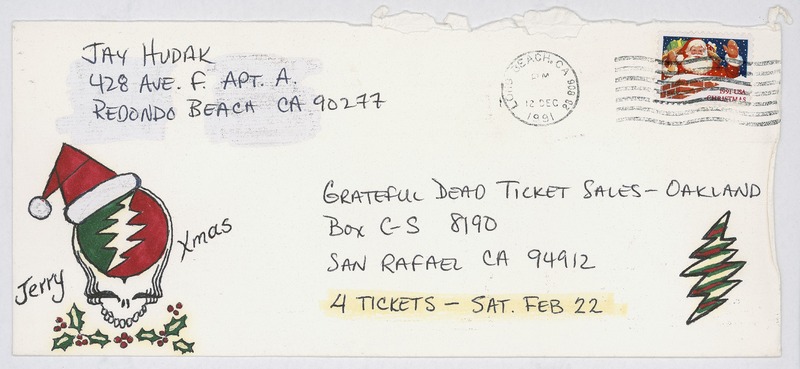 JAY HUDAK
428 AVE. F. APT. A.
REDONDO BEACH CA 90277
LONG BEACH, CA
PM
12 DEC
1991
1991 USA
CHRISTMAS
GRATEFUL DEAD TICKET SALES - OAKLAND
BOX C-S 8190
SAN RAFAEL CA 94912
4 TICKETS - SAT. FEB 22
Jerry
Xmas